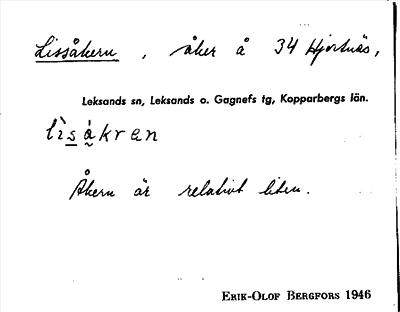 Lissåkern, åker å 34 Hjortnäs,
Leksands sn, Leksands o. Gagnefs tg, Kopparbergs län.
lìsåkrɐn
Åkern är relativt liten.
ERIK-OLOF BERGFORS 1946